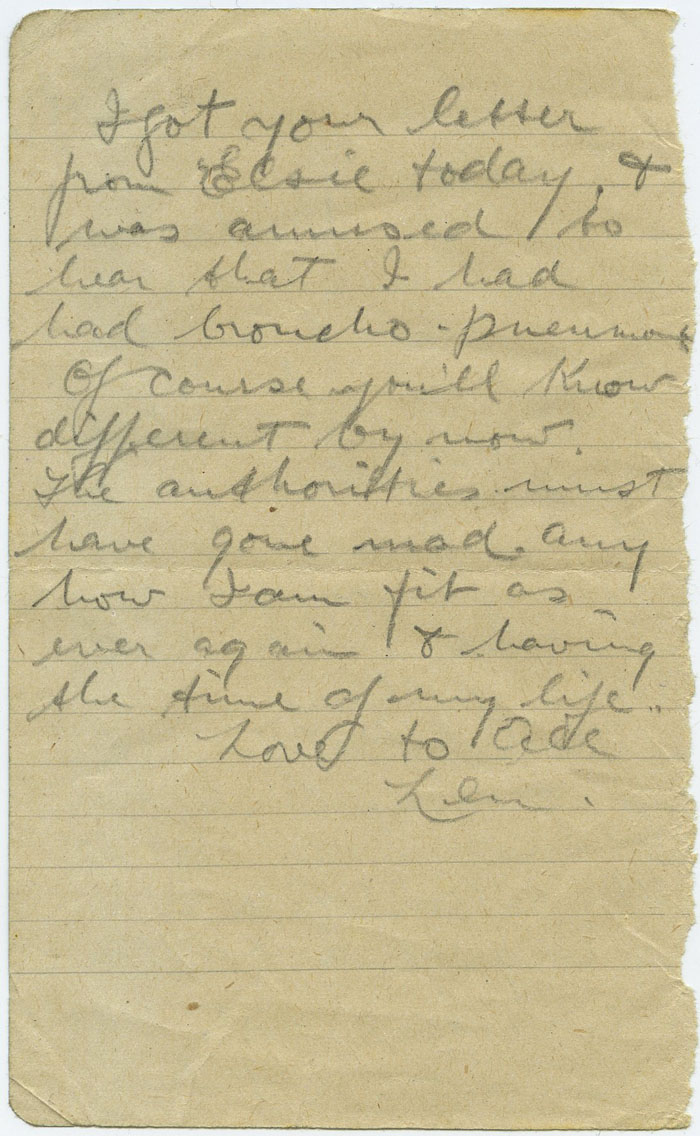 I got your letter
from Elsie today, &
was amused to
hear that I had
had broncho-pneumonia
Of course you'll know
different by now.
The authorities must
have gone mad. any
how I am fit as
ever again & having
the time of my life..
Love to all
Len.